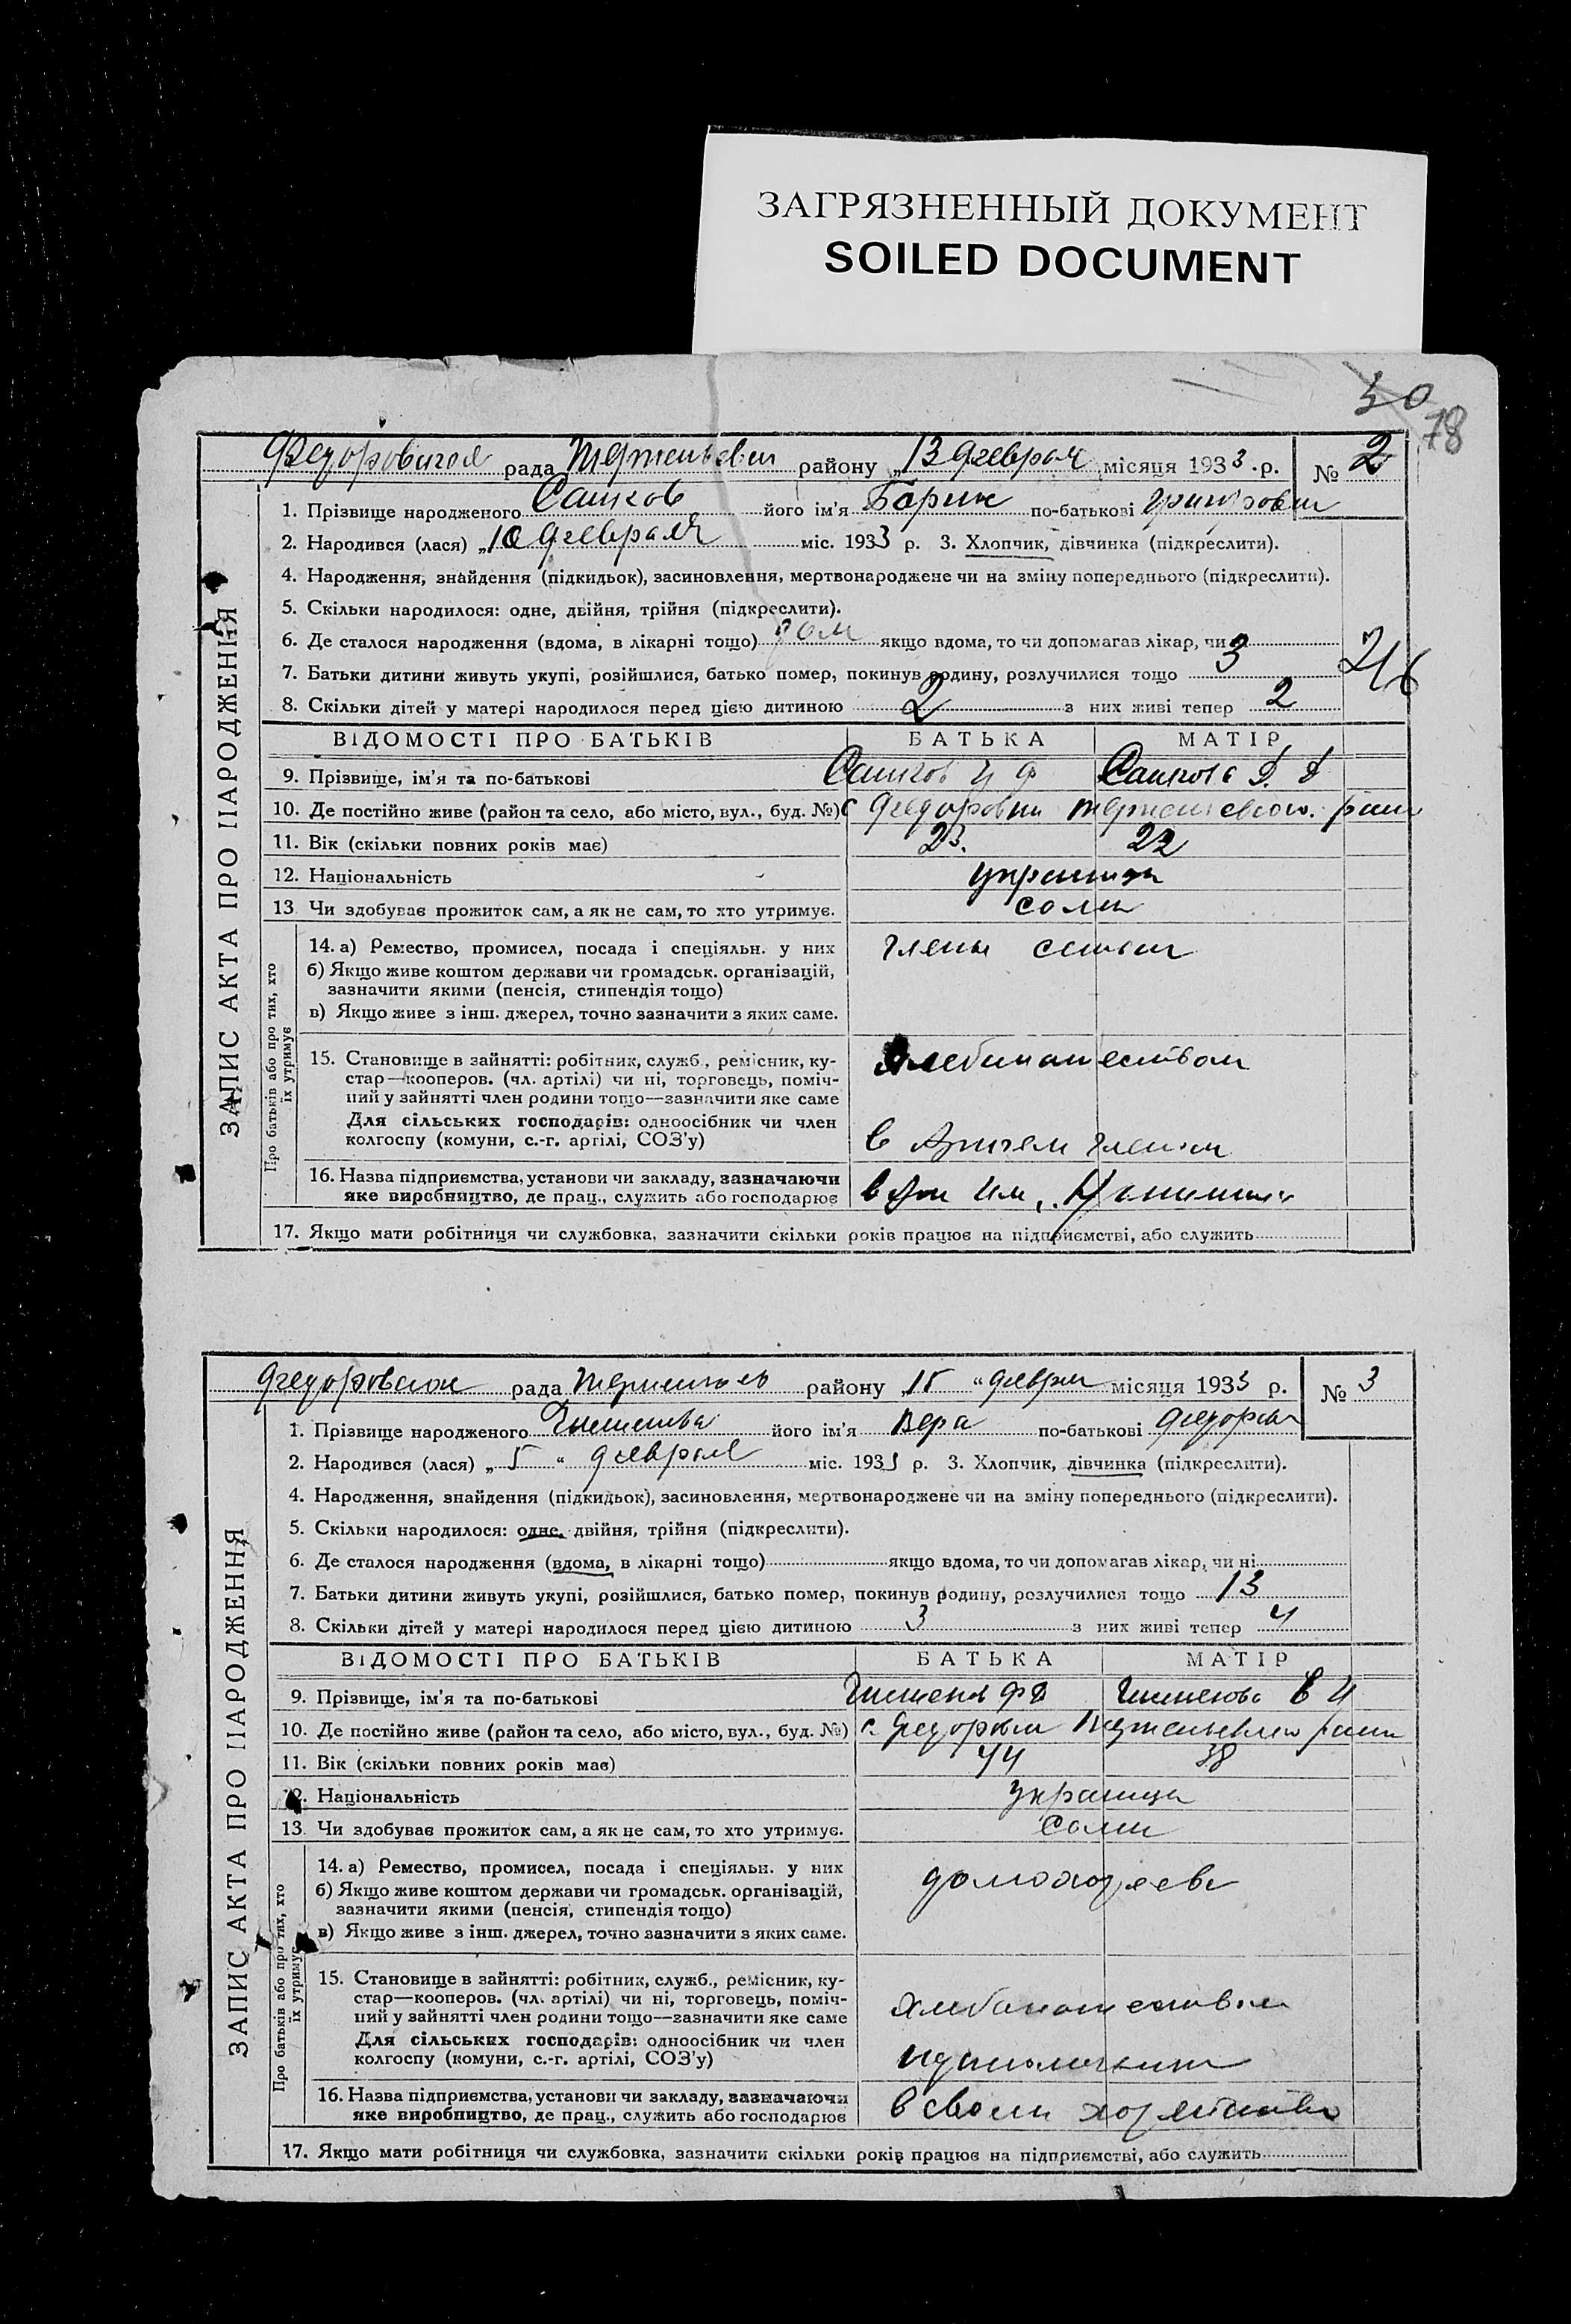 ЗАГРЯЗНЕННЫЙ ДОКУМЕНТ
SOILED DOCUMENT
30
78
рада району „13 февраля місяця 1933 р. № 2
1. Прізвище народженого Сашков його ім'я Борис по-батькові
2. Народився (лася) „10 февраля міс. 1933 р. 3. Хлопчик, дівчинка (підкреслити).
4. Народження, знайдення (підкидьок), засиновлення, мертвонароджене чи на зміну попереднього (підкреслити).
5. Скільки народилося: одне, двійня, трійня (підкреслити).
6. Де сталося народження (вдома, в лікарні тощо) дом якщо вдома, то чи допомагав лікар, чи
7. Батьки дитини живуть укупі, розійшлися, батько помер, покинув родину, розлучилися тощо 3
8. Скільки дітей у матері народилося перед цією дитиною 2 з них живі тепер 2
ВІДОМОСТІ ПРО БАТЬКІВ БАТЬКА МАТІР
9. Прізвище, ім'я та по-батькові Сашков Сашкова
10. Де постійно живе (район та село, або місто, вул., буд. №) с
11. Вік (скільки повних років має) 23. 22
12. Національність украинци
13. Чи здобуває прожиток сам, а як не сам, то хто утримує. сами
14. а) Ремество, промисел, посада і спеціяльн. у них члены семьи
б) Якщо живе коштом держави чи громадськ. організацій,
зазначити якими (пенсія, стипендія тощо)
в) Якщо живе з інш. джерел, точно зазначити з яких саме.
15. Становище в зайнятті: робітник, служб., ремісник, ку-
стар—кооперов. (чл. артілі) чи ні, торговець, поміч-
ний у зайнятті член родини тощо—зазначити яке саме
Для сільських господарів: одноосібник чи член
колгоспу (комуни, с.-г. артілі, СОЗ'у) в
16. Назва підприємства, установи чи закладу, зазначаючи
яке виробництво, де прац., служить або господарює
17. Якщо мати робітниця чи службовка, зазначити скільки років працює на підприємстві, або служить
ЗАПИС АКТА ПРО НАРОДЖЕННЯ
Про батьків або про тих, хто
їх утримує
рада району „15 “ місяця 1933 р. № 3
1. Прізвище народженого його ім'я Вера по-батькові
2. Народився (лася) „ 5 “ февраля міс. 1933 р. 3. Хлопчик, дівчинка (підкреслити).
4. Народження, знайдення (підкидьок), засиновлення, мертвонароджене чи на зміну попереднього (підкреслити).
5. Скільки народилося: одне, двійня, трійня (підкреслити).
6. Де сталося народження (вдома, в лікарні тощо) якщо вдома, то чи допомагав лікар, чи ні
7. Батьки дитини живуть укупі, розійшлися, батько помер, покинув родину, розлучилися тощо 13
8. Скільки дітей у матері народилося перед цією дитиною 3 з них живі тепер 4
ВІДОМОСТІ ПРО БАТЬКІВ БАТЬКА МАТІР
9. Прізвище, ім'я та по-батькові
10. Де постійно живе (район та село, або місто, вул., буд. №) с.
11. Вік (скільки повних років має) 44 38
12. Національність украинци
13. Чи здобуває прожиток сам, а як не сам, то хто утримує. сами
14. а) Ремество, промисел, посада і спеціяльн. у них
б) Якщо живе коштом держави чи громадськ. організацій,
зазначити якими (пенсія, стипендія тощо)
в) Якщо живе з інш. джерел, точно зазначити з яких саме.
15. Становище в зайнятті: робітник, служб., ремісник, ку-
стар—кооперов. (чл. артілі) чи ні, торговець, поміч-
ний у зайнятті член родини тощо—зазначити яке саме
Для сільських господарів: одноосібник чи член
колгоспу (комуни, с.-г. артілі, СОЗ'у)
16. Назва підприємства, установи чи закладу, зазначаючи
яке виробництво, де прац., служить або господарює в своем
17. Якщо мати робітниця чи службовка, зазначити скільки років працює на підприємстві, або служить
ЗАПИС АКТА ПРО НАРОДЖЕННЯ
Про батьків або про тих, хто
їх утримує